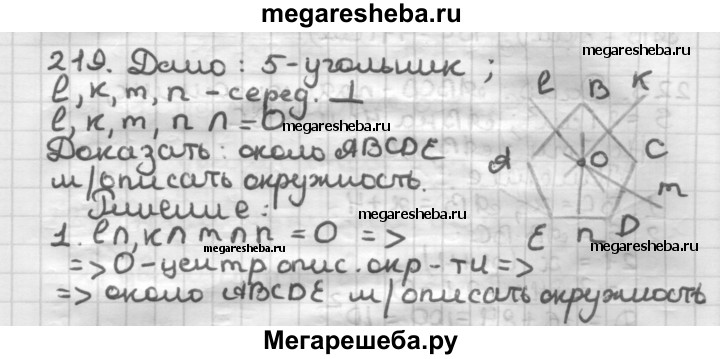 megaresheba.ru
219. Дано: 5-угольник;
megaresheba.ru
l, к, m, n - серед. ⊥
l, к, m, n ∩ = O
megaresheba.ru
Доказать: около ABCDE
м/описать окружность.
megaresheba.ru
Решение:
1. l∩, к∩ m∩ n = O =>
megaresheba.ru
=> O-центр опис. окр-ти =>
=> около ABCDE м/описать окружность
l B K
A O C
m
E n D
megaresheba.ru
Мегарешеба.ру